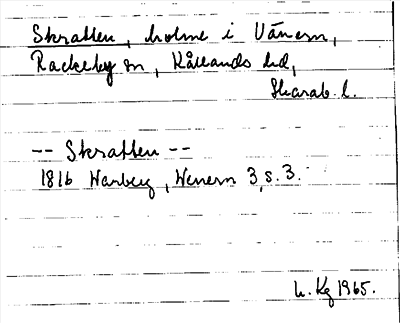 Skratten, holme i Vänern,
Rackeby sn, Kållands hd,
Skarab. l.
-- Skratten --
1816 Warberg, Wenern 3, s. 3.
h. Kg 1965.